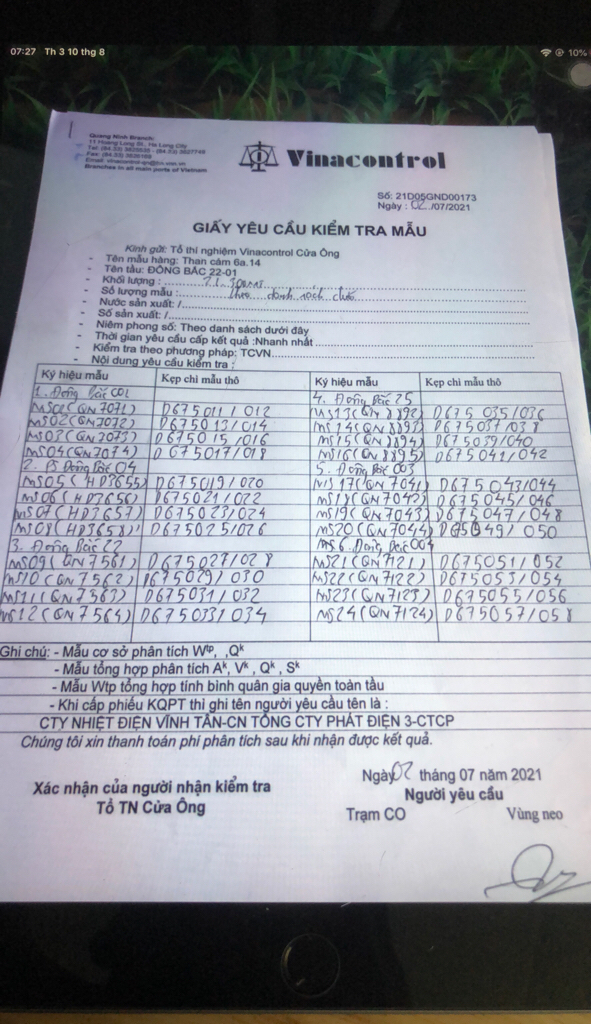 07:27 Th 3 10 thg 8
10%
Quang Ninh Branch:
11 Hoang Long St., Ha Long City
Branches in all main ports of Vietnam
Vinacontrol
Số: 21D05GND00173
Ngày : 02../07/2021
GIẤY YÊU CẦU KIỂM TRA MẪU
Kính gửi: Tổ thí nghiệm Vinacontrol Cửa Ông
- Tên mẫu hàng: Than cám 6a.14
- Tên tàu: ĐÔNG BẮC 22-01
- Khối lượng :
- Số lượng mẫu : theo danh sách
- Nước sản xuất: /
- Số sản xuất: /
- Niêm phong số: Theo danh sách dưới đây
- Thời gian yêu cầu cấp kết quả :Nhanh nhất
- Kiểm tra theo phương pháp: TCVN
- Nội dung yêu cầu kiểm tra :
Ký hiệu mẫu Kẹp chì mẫu thô Ký hiệu mẫu Kẹp chì mẫu thô
1. Đông Bắc C01 4. Đông Bắc 25
MS01(QN7071) D675011/012 MS13(QN8892) D675035/036
MS02(QN7072) D675013/014 MS14(QN8893) D675037/038
MS03(QN7073) D675015/016 MS15(QN8894) D675039/040
MS04(QN7074) D675017/018 MS16(QN8895) D675041/042
2. Đông Bắc 04 5. Đông Bắc 003
MS05(HD3655) D675019/020 MS17(QN7041) D675043/044
MS06(HD3656) D675021/022 MS18(QN7042) D675045/046
MS07(HD3657) D675023/024 MS19(QN7043) D675047/048
MS08(HD3658) D675025/026 MS20(QN7044) D675049/050
3. Đông Bắc 22 6. Đông Bắc 004
MS09(QN7561) D675027/028 MS21(QN7121) D675051/052
MS10(QN7562) D675029/030 MS22(QN7122) D675053/054
MS11(QN7563) D675031/032 MS23(QN7123) D675055/056
MS12(QN7564) D675033/034 MS24(QN7124) D675057/058
Ghi chú: - Mẫu cơ sở phân tích Wtp, ,Qk
- Mẫu tổng hợp phân tích Ak, Vk , Qk , Sk
- Mẫu Wtp tổng hợp tính bình quân gia quyền toàn tàu
- Khi cấp phiếu KQPT thì ghi tên người yêu cầu tên là :
CTY NHIỆT ĐIỆN VĨNH TÂN-CN TỔNG CTY PHÁT ĐIỆN 3-CTCP
Chúng tôi xin thanh toán phí phân tích sau khi nhận được kết quả.
Ngày 02 tháng 07 năm 2021
Xác nhận của người nhận kiểm tra Người yêu cầu
Tổ TN Cửa Ông Trạm CO Vùng neo